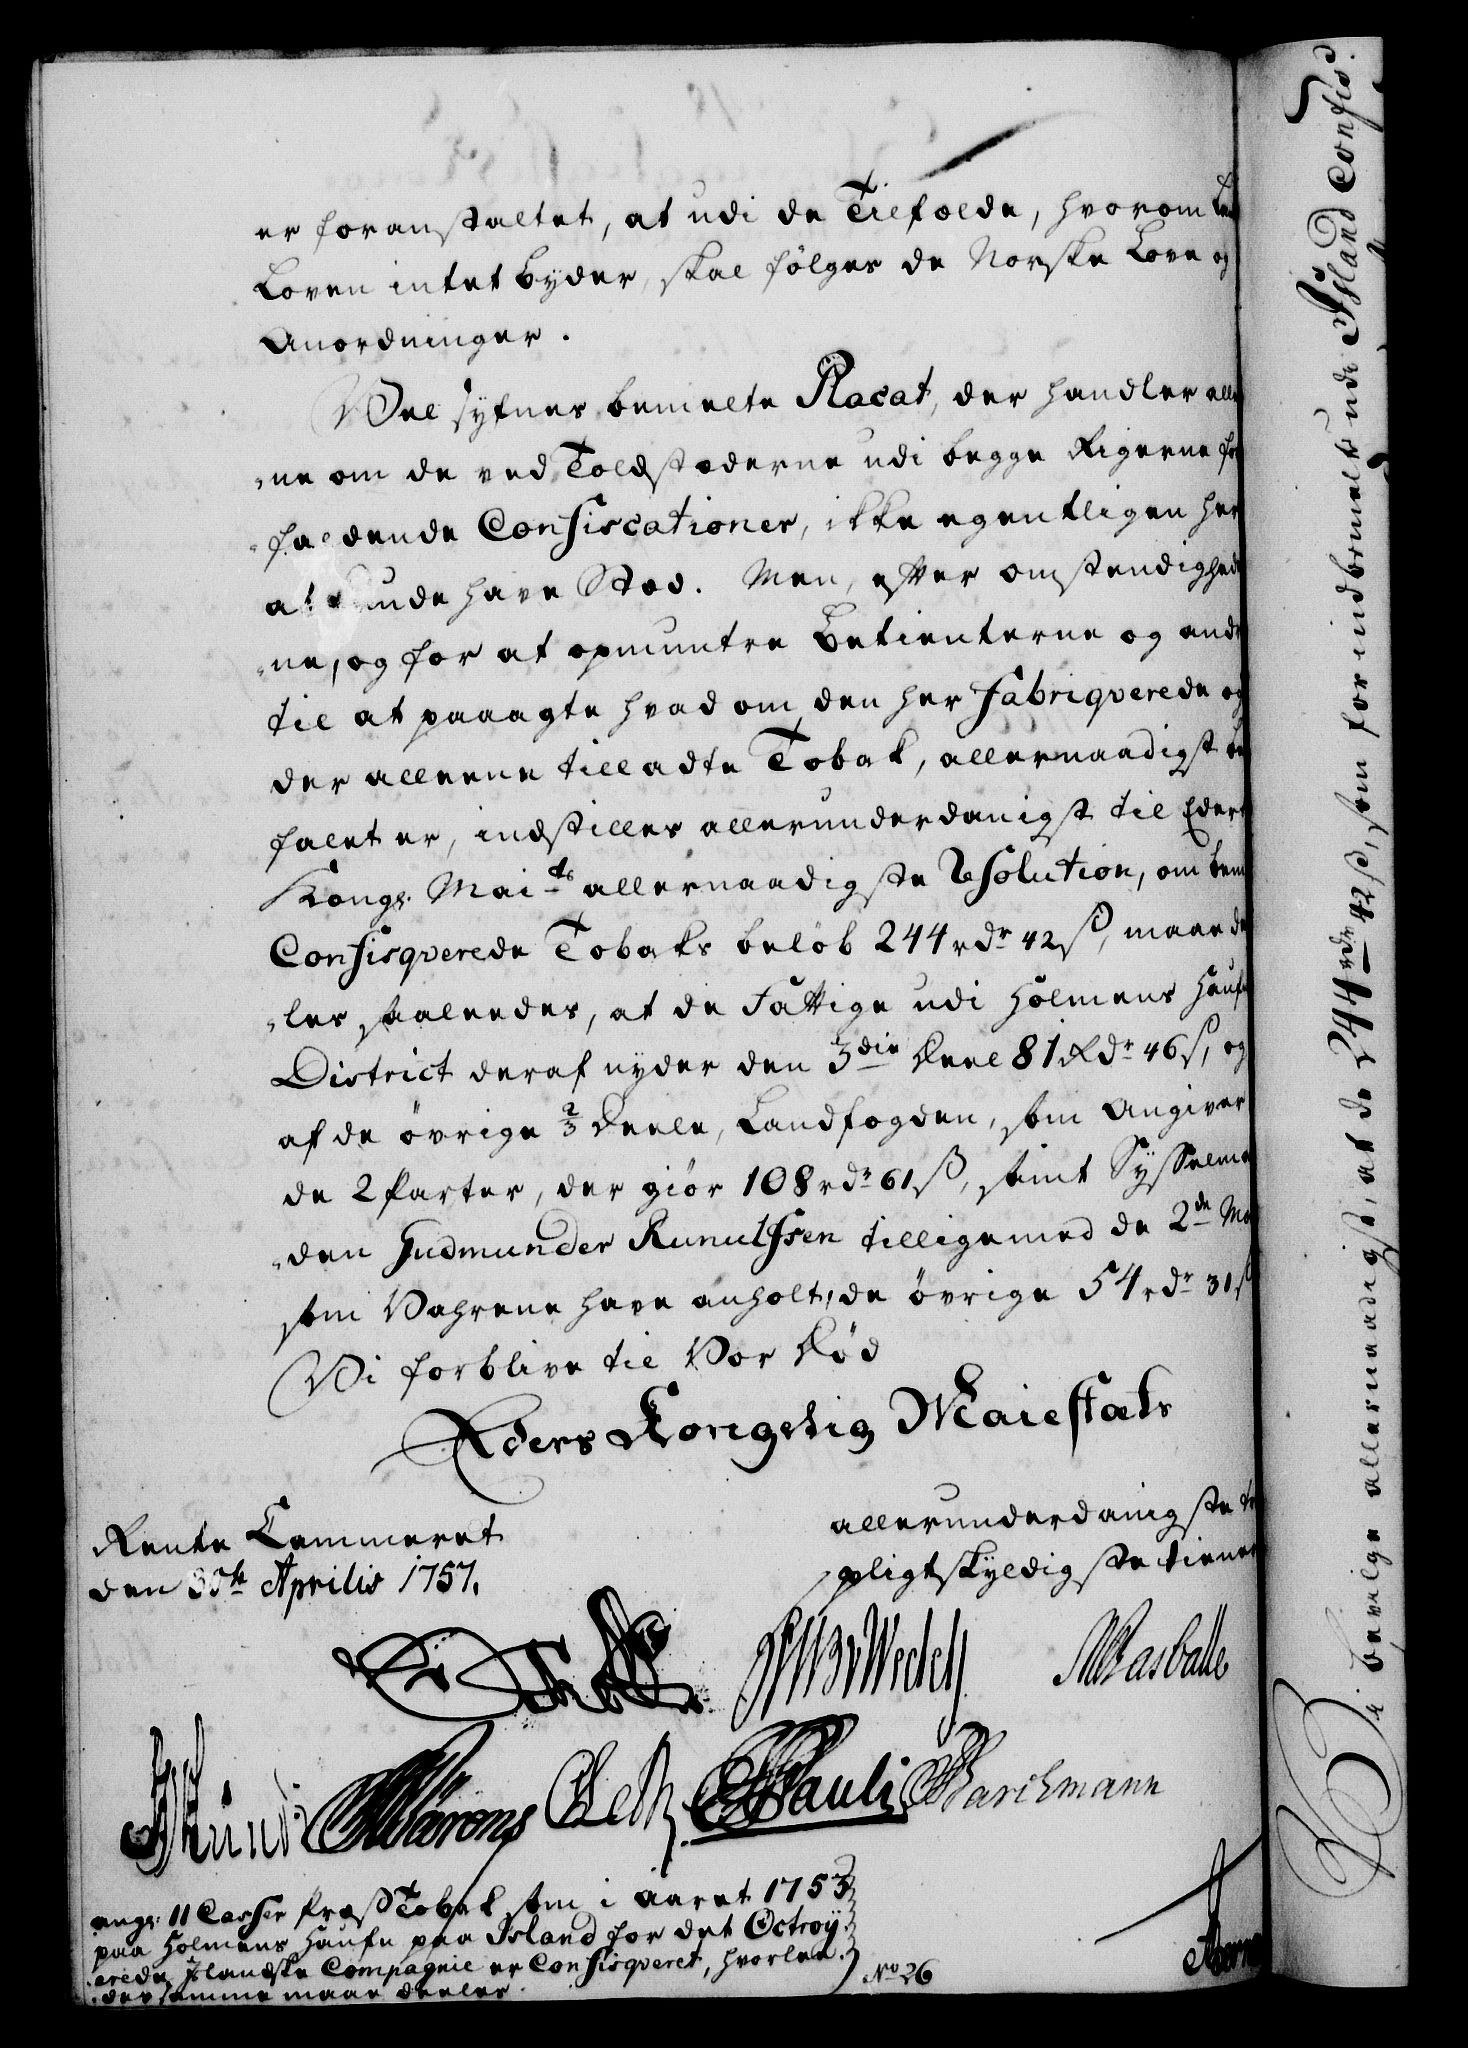 er foranstaltet, at udi de Tilfælde, hvorom
Loven intet byder, skal følges de Norske Love og
Anordninger.
Vel synes bemelte Placat, der handler alle
-ne om de ved Toldstæderne udi begge Rigerne for
-faldende Confiscationer, ikke egentligen her
at kunde have Stæd. Men, efter omstendighed
-ne, og for at opmuntre Betienterne og andre
til at paaagte hvad om den her Fabriqverede og
der alleene tilladte Tobak, allernaadigst be
falet er, indstilles allerunderdanigst til Eders
Kongl. Mai.ts allernaadigste Resolution, om bem.
Confisqverede Tobaks beløb 244 rdr 42 ß, maae de
-les saaledes, at de Fattige udi Holmens Hafn
District deraf nyder den 3die Deel 81 Rdr 46 ß, og
af de øvrige 2/3 Deele, Landfogden, som Angiver
de 2 Parter, der giør 108 rdr 61 ß, samt Sysselma
-den Gudmunder Runulfsen tilligemed de 2de Mæ
som Vahrene have anholt, de øvrige 54 rdr 31 ß
Vi forblive til Vor Død
Eders Kongelig Maiestæts
allerunderdanigste
pligtskyldigste tiener
Rente Cammeret
den 30te Aprilis 1757.
Wedell
Rasballe
Pauli
Barchmann
angl. 11 Casser Præs Tobak som i Aaret 1753
paa Holmens Haufn paa Island for det Octroy
-erede Islandske Compagnie er Confisqveret, hvorlee-
-des samme maae deeles.
No 26
Vi bevilge allernaadigst, at de 244 rdr 42 ß, som for indbemelte udi Island Confis